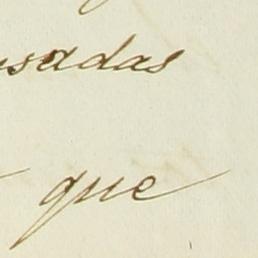 usadas
que